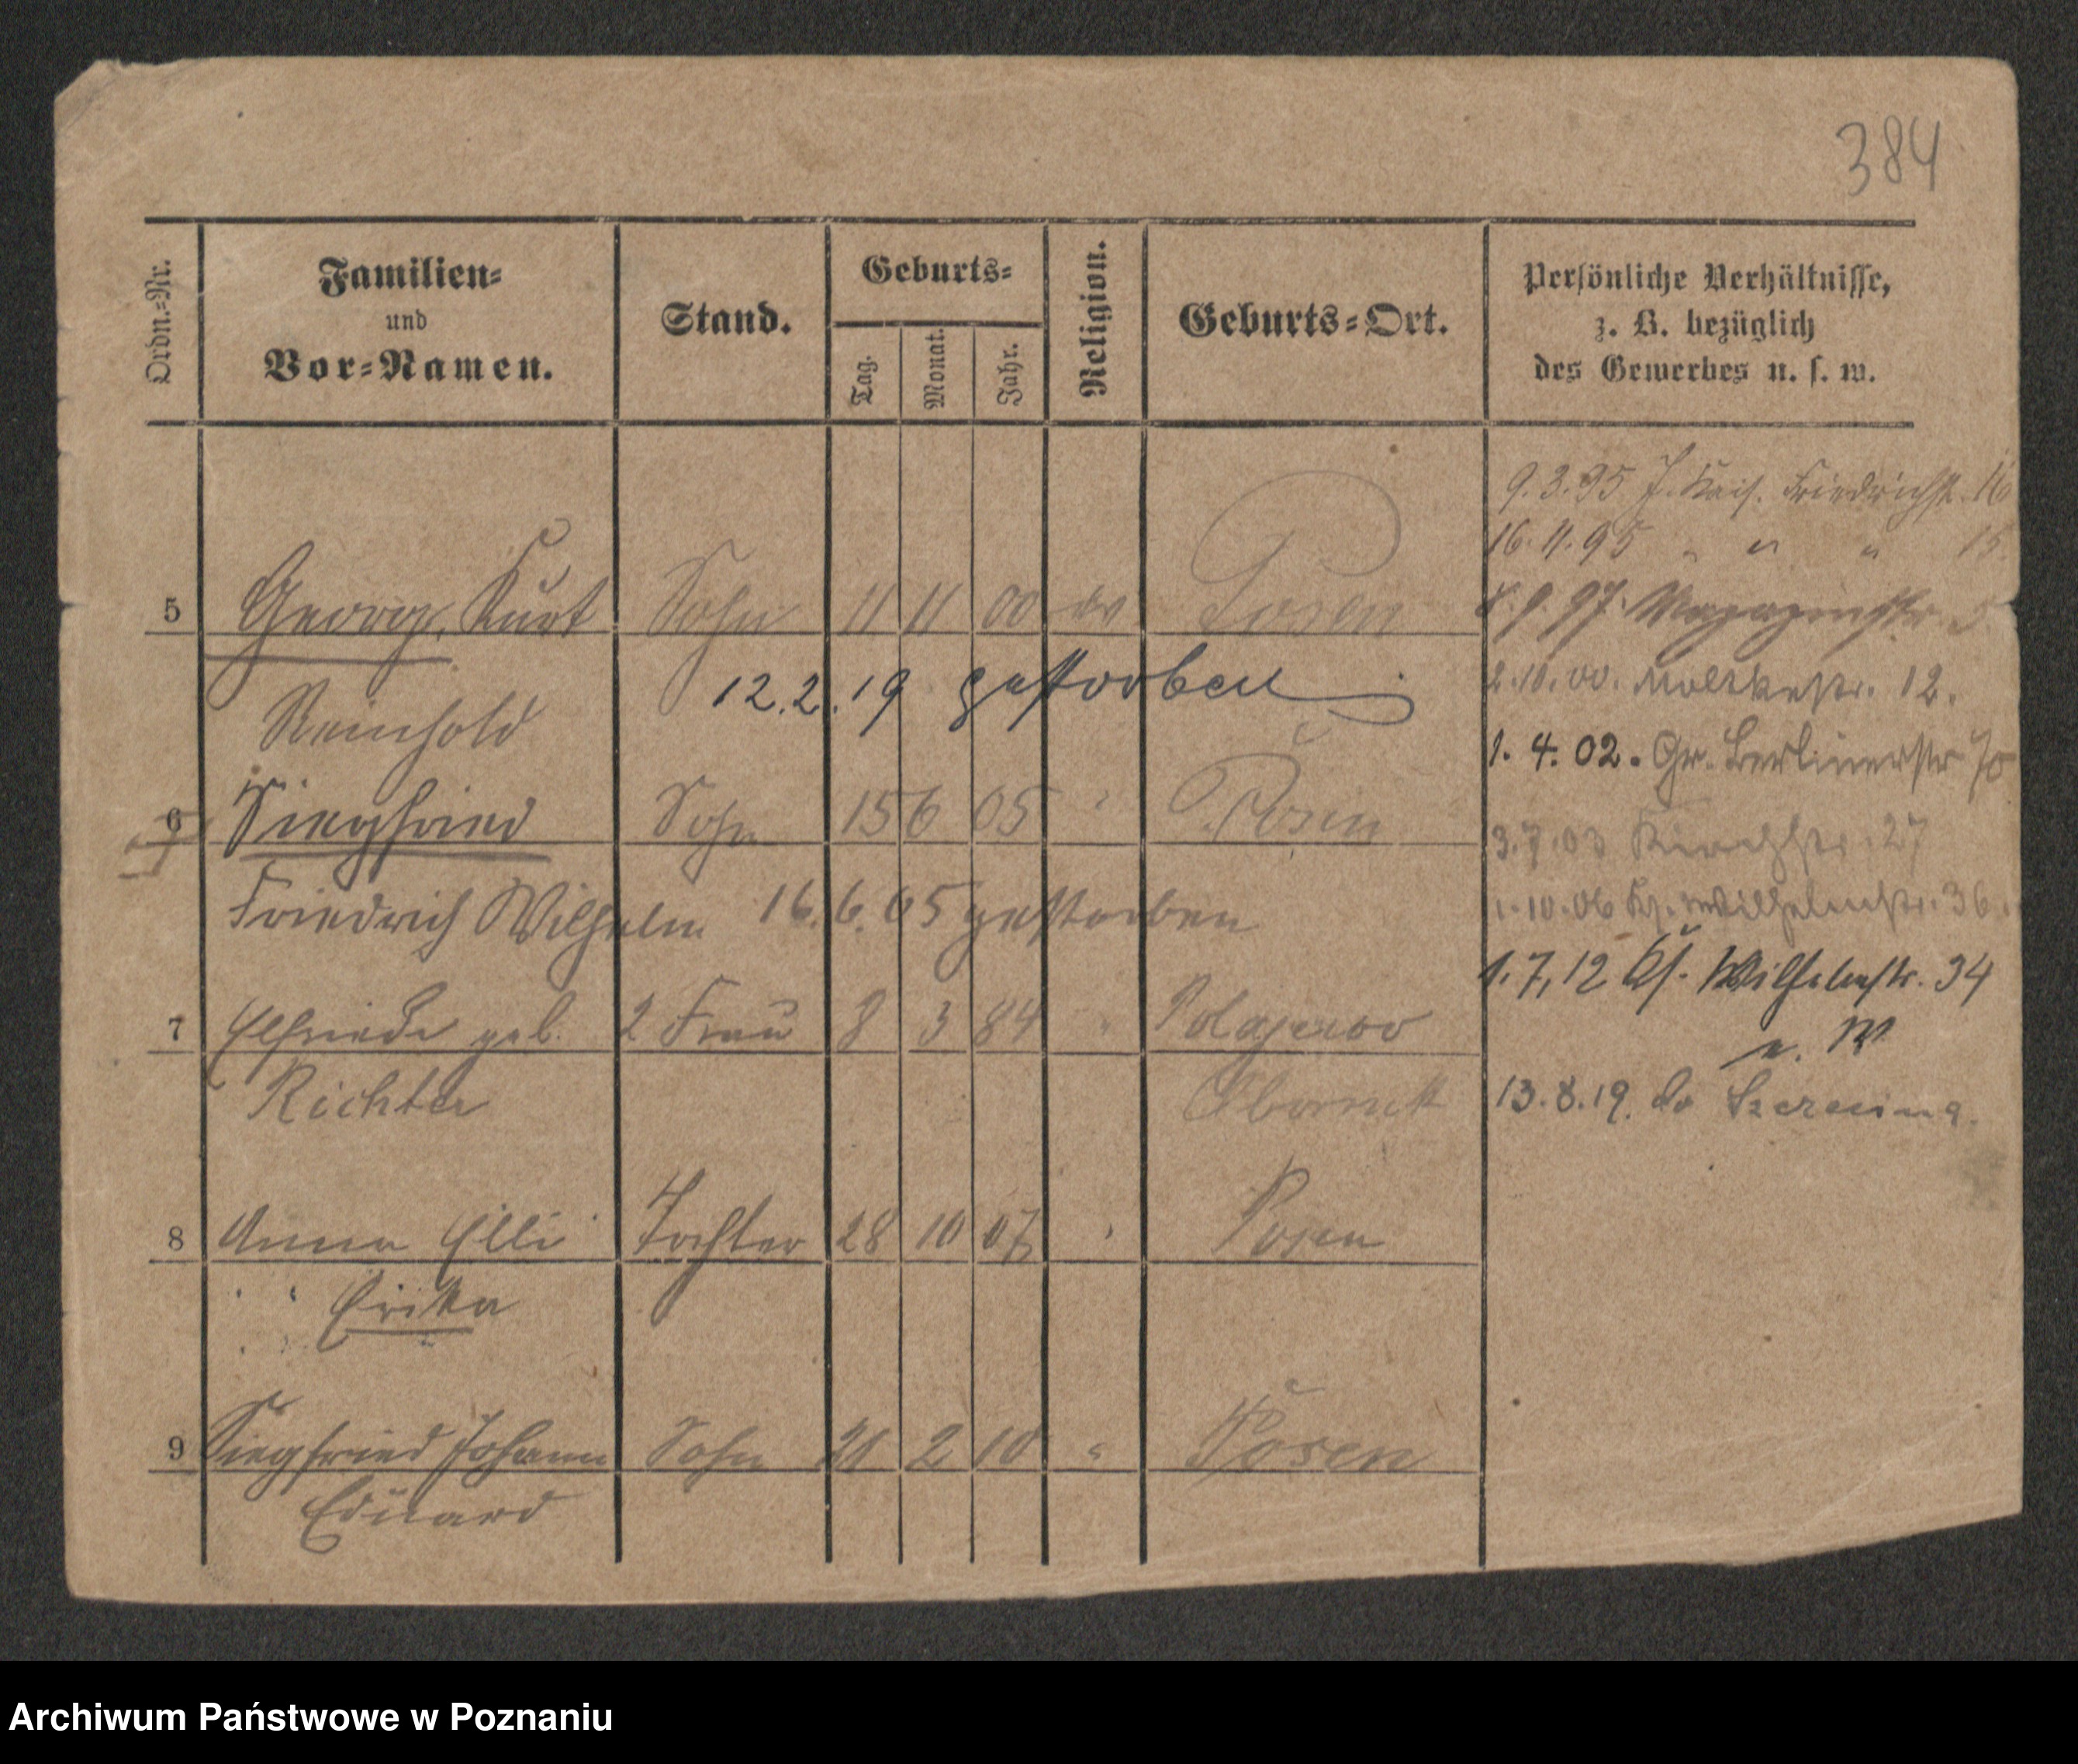 384
Ordn.-Nr.
Familien-
und
Vor-Namen.
Stand.
Geburts-
Tag.
Monat.
Jahr.
Religion.
Geburts-Ort.
Persönliche Verhältnisse,
z. B. bezüglich
des Gewerbes u. s. w.
5 Georg, Kurt Sohn 11 11 00 ev Posen
Reinhold 12.2.19 gestorben
6 Siegfried Sohn 15 6 05 " Posen
Friedrich Wilhelm 16.6.05 gestorben
7 Elfriede geb. 2 Frau 8 3 84 " Polajewo
Richter Obornik
8 Anna Elli Tochter 28 10 07 " Posen
Erika
9 Siegfried Johann Sohn 21 2 10 " Posen
Eduard
9.3.95 Kais. Friedrichstr. 16
16.11.95 " " " 15
8.9.97. Magazinstr.
2.10.00. Moltkestr. 12.
1.4.02. Gr. Berlinerstr 70
3.7.03 Kirchstr. 27
1.10.06 Kf. Wilhelmstr. 36
1.7.12 Kf. Wilhelmstr. 34
13.8.19. do
Archiwum Państwowe w Poznaniu